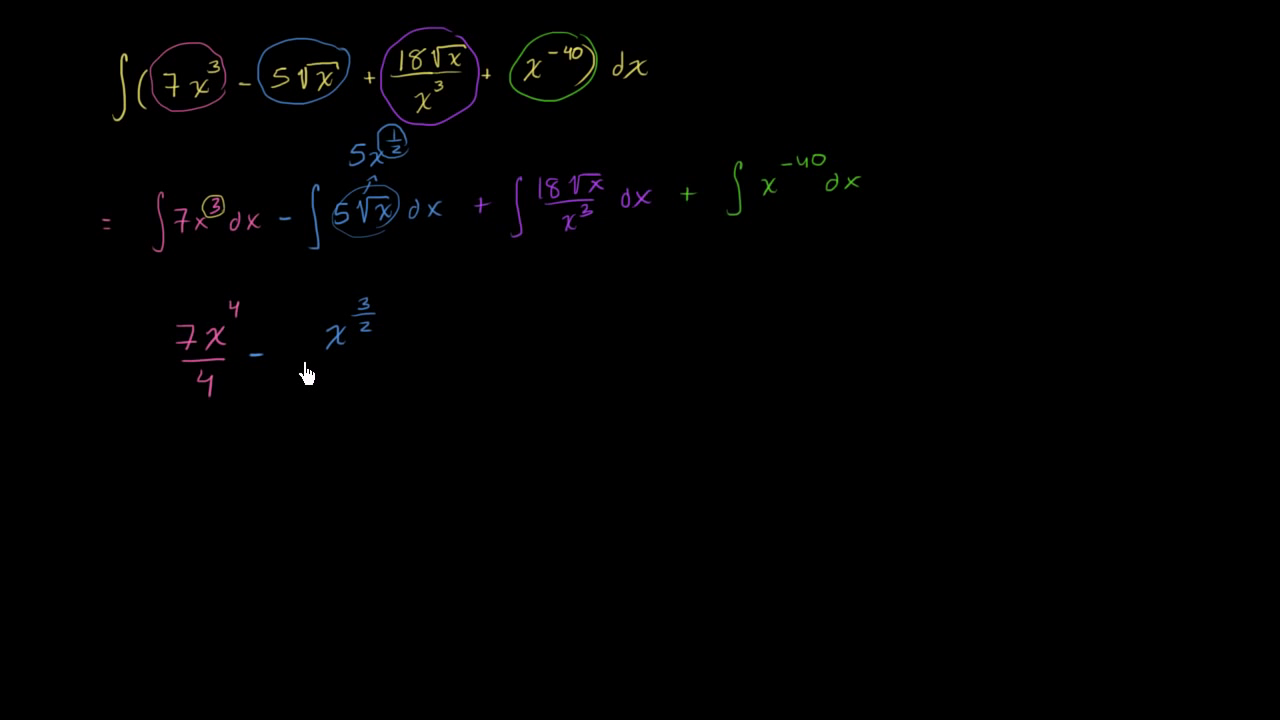 ∫( 7x³ - 5√x + 18√x/x³ + x⁻⁴⁰) dx
5x^(1/2)
= ∫ 7x³ dx - ∫ 5√x dx + ∫ 18√x/x³ dx + ∫ x⁻⁴⁰ dx
7x⁴/4 - x^(3/2)